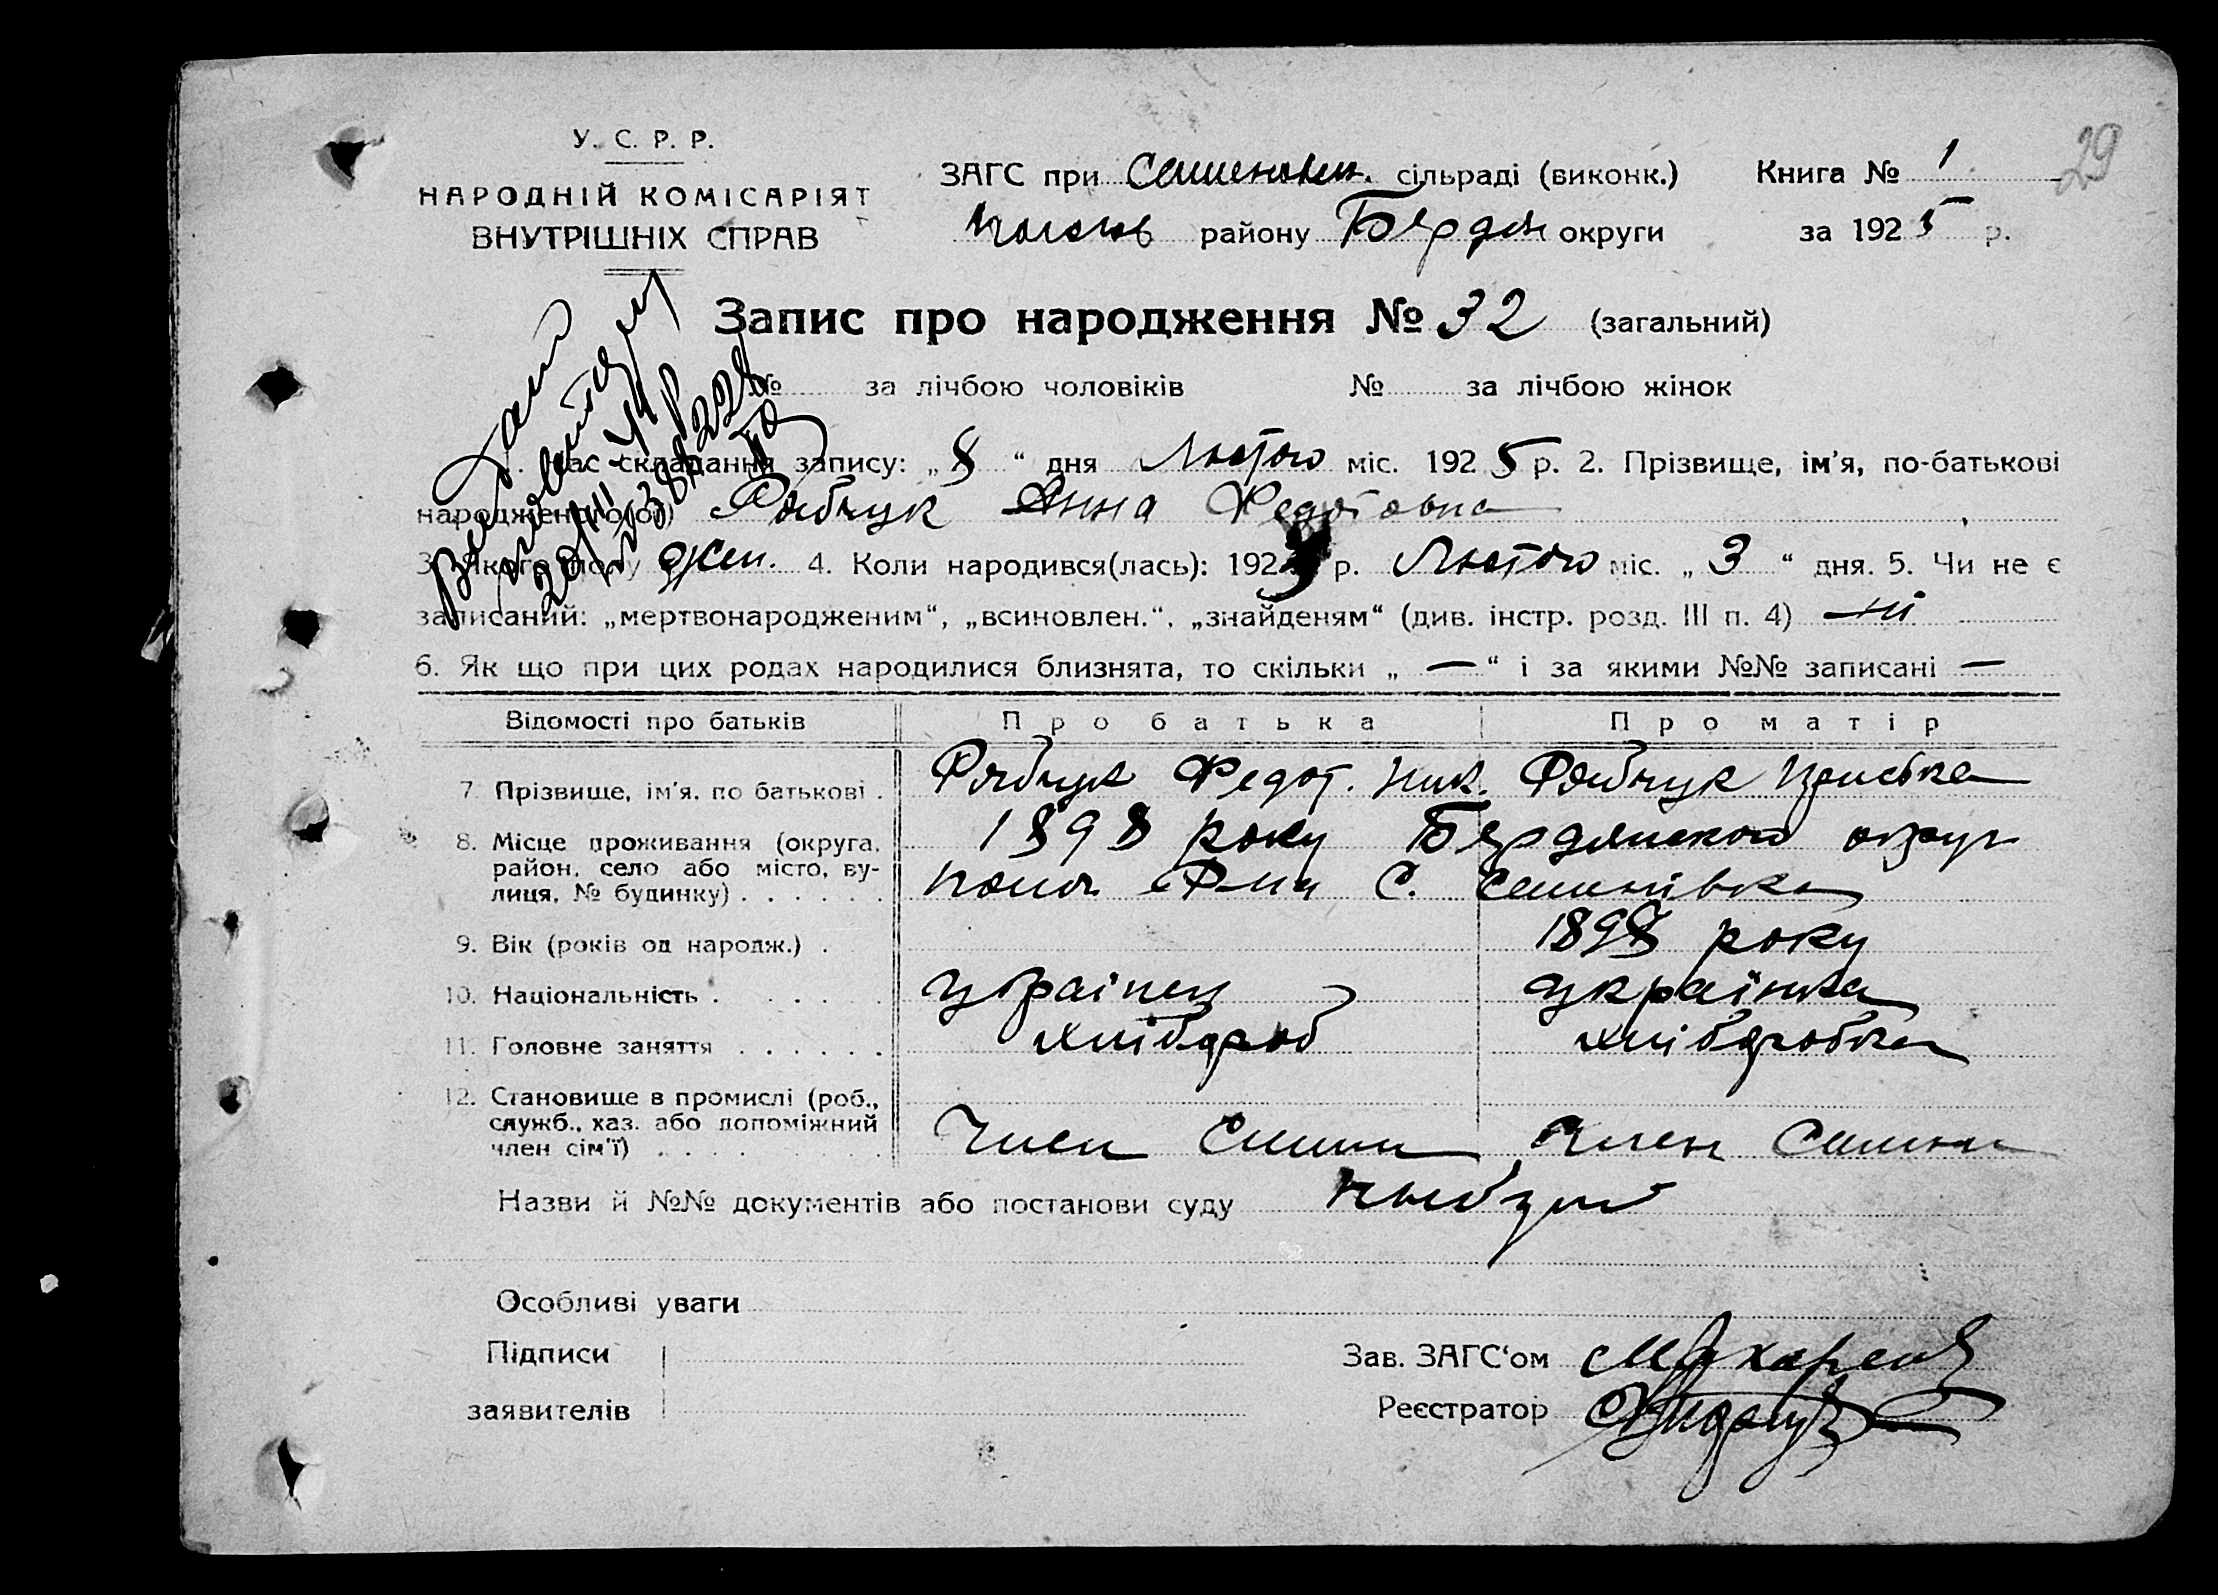 29
У. С. Р. Р.
НАРОДНІЙ КОМІСАРІЯТ
ВНУТРІШНІХ СПРАВ
ЗАГС при сільраді (виконк.) Книга № 1
району Бердян округи за 1925 р.
Запис про народження № 32 (загальний)
№ за лічбою чоловіків № за лічбою жінок
1. Час складання запису: „8“ дня Лютого міс. 1925 р. 2. Прізвище, ім'я, по-батькові
народженого(ої) Рябчук Анна Федотовна
3. Якого полу жен. 4. Коли народився(лась): 192 р. Лютого міс. „3“ дня. 5. Чи не є
записаний: „мертвонародженим“, „всиновлен.“, „знайденям“ (див. інстр. розд. III п. 4) ні
6. Як що при цих родах народилися близнята, то скільки „—“ і за якими №№ записані —
Відомості про батьків Про батька Про матір
7. Прізвище, ім'я, по батькові . Рябчук Федот. Ник. Рябчук
8. Місце проживання (округа, 1898 року Бердянскої округ
район, село або місто, ву- С. Семенівка
лиця, № будинку) . . . . . .
9. Вік (років од народж.) . 1898 року
10. Національність . . . . . українец українка
11. Головне заняття . . . . . . хлібороб хліборобка
12. Становище в промислі (роб.,
служб., хаз. або допоміжний Член Семьи Член Семьи
член сім'ї) . . . . . . . .
Назви й №№ документів або постанови суду
Особливі уваги
Підписи Зав. ЗАГС'ом
заявителів Реєстратор